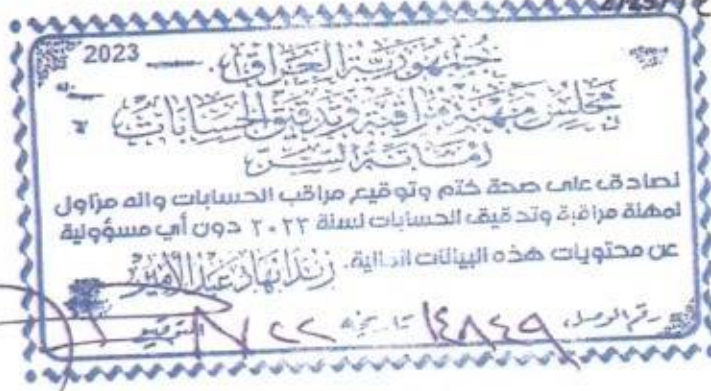 2023
جمهورية العراق
مجلس مهنة مراقبة وتدقيق الحسابات
امانة السر
نصادق على صحة ختم وتوقيع مراقب الحسابات وانه مزاول
لمهنة مراقبة وتدقيق الحسابات لسنة ٢٠٢٣ دون أي مسؤولية
عن محتويات هذه البيانات المالية. زيد نهاد عبد الأمير
رقم الوصل، ١٤٨٤٩ تاريخه ٢٢ التوقيع